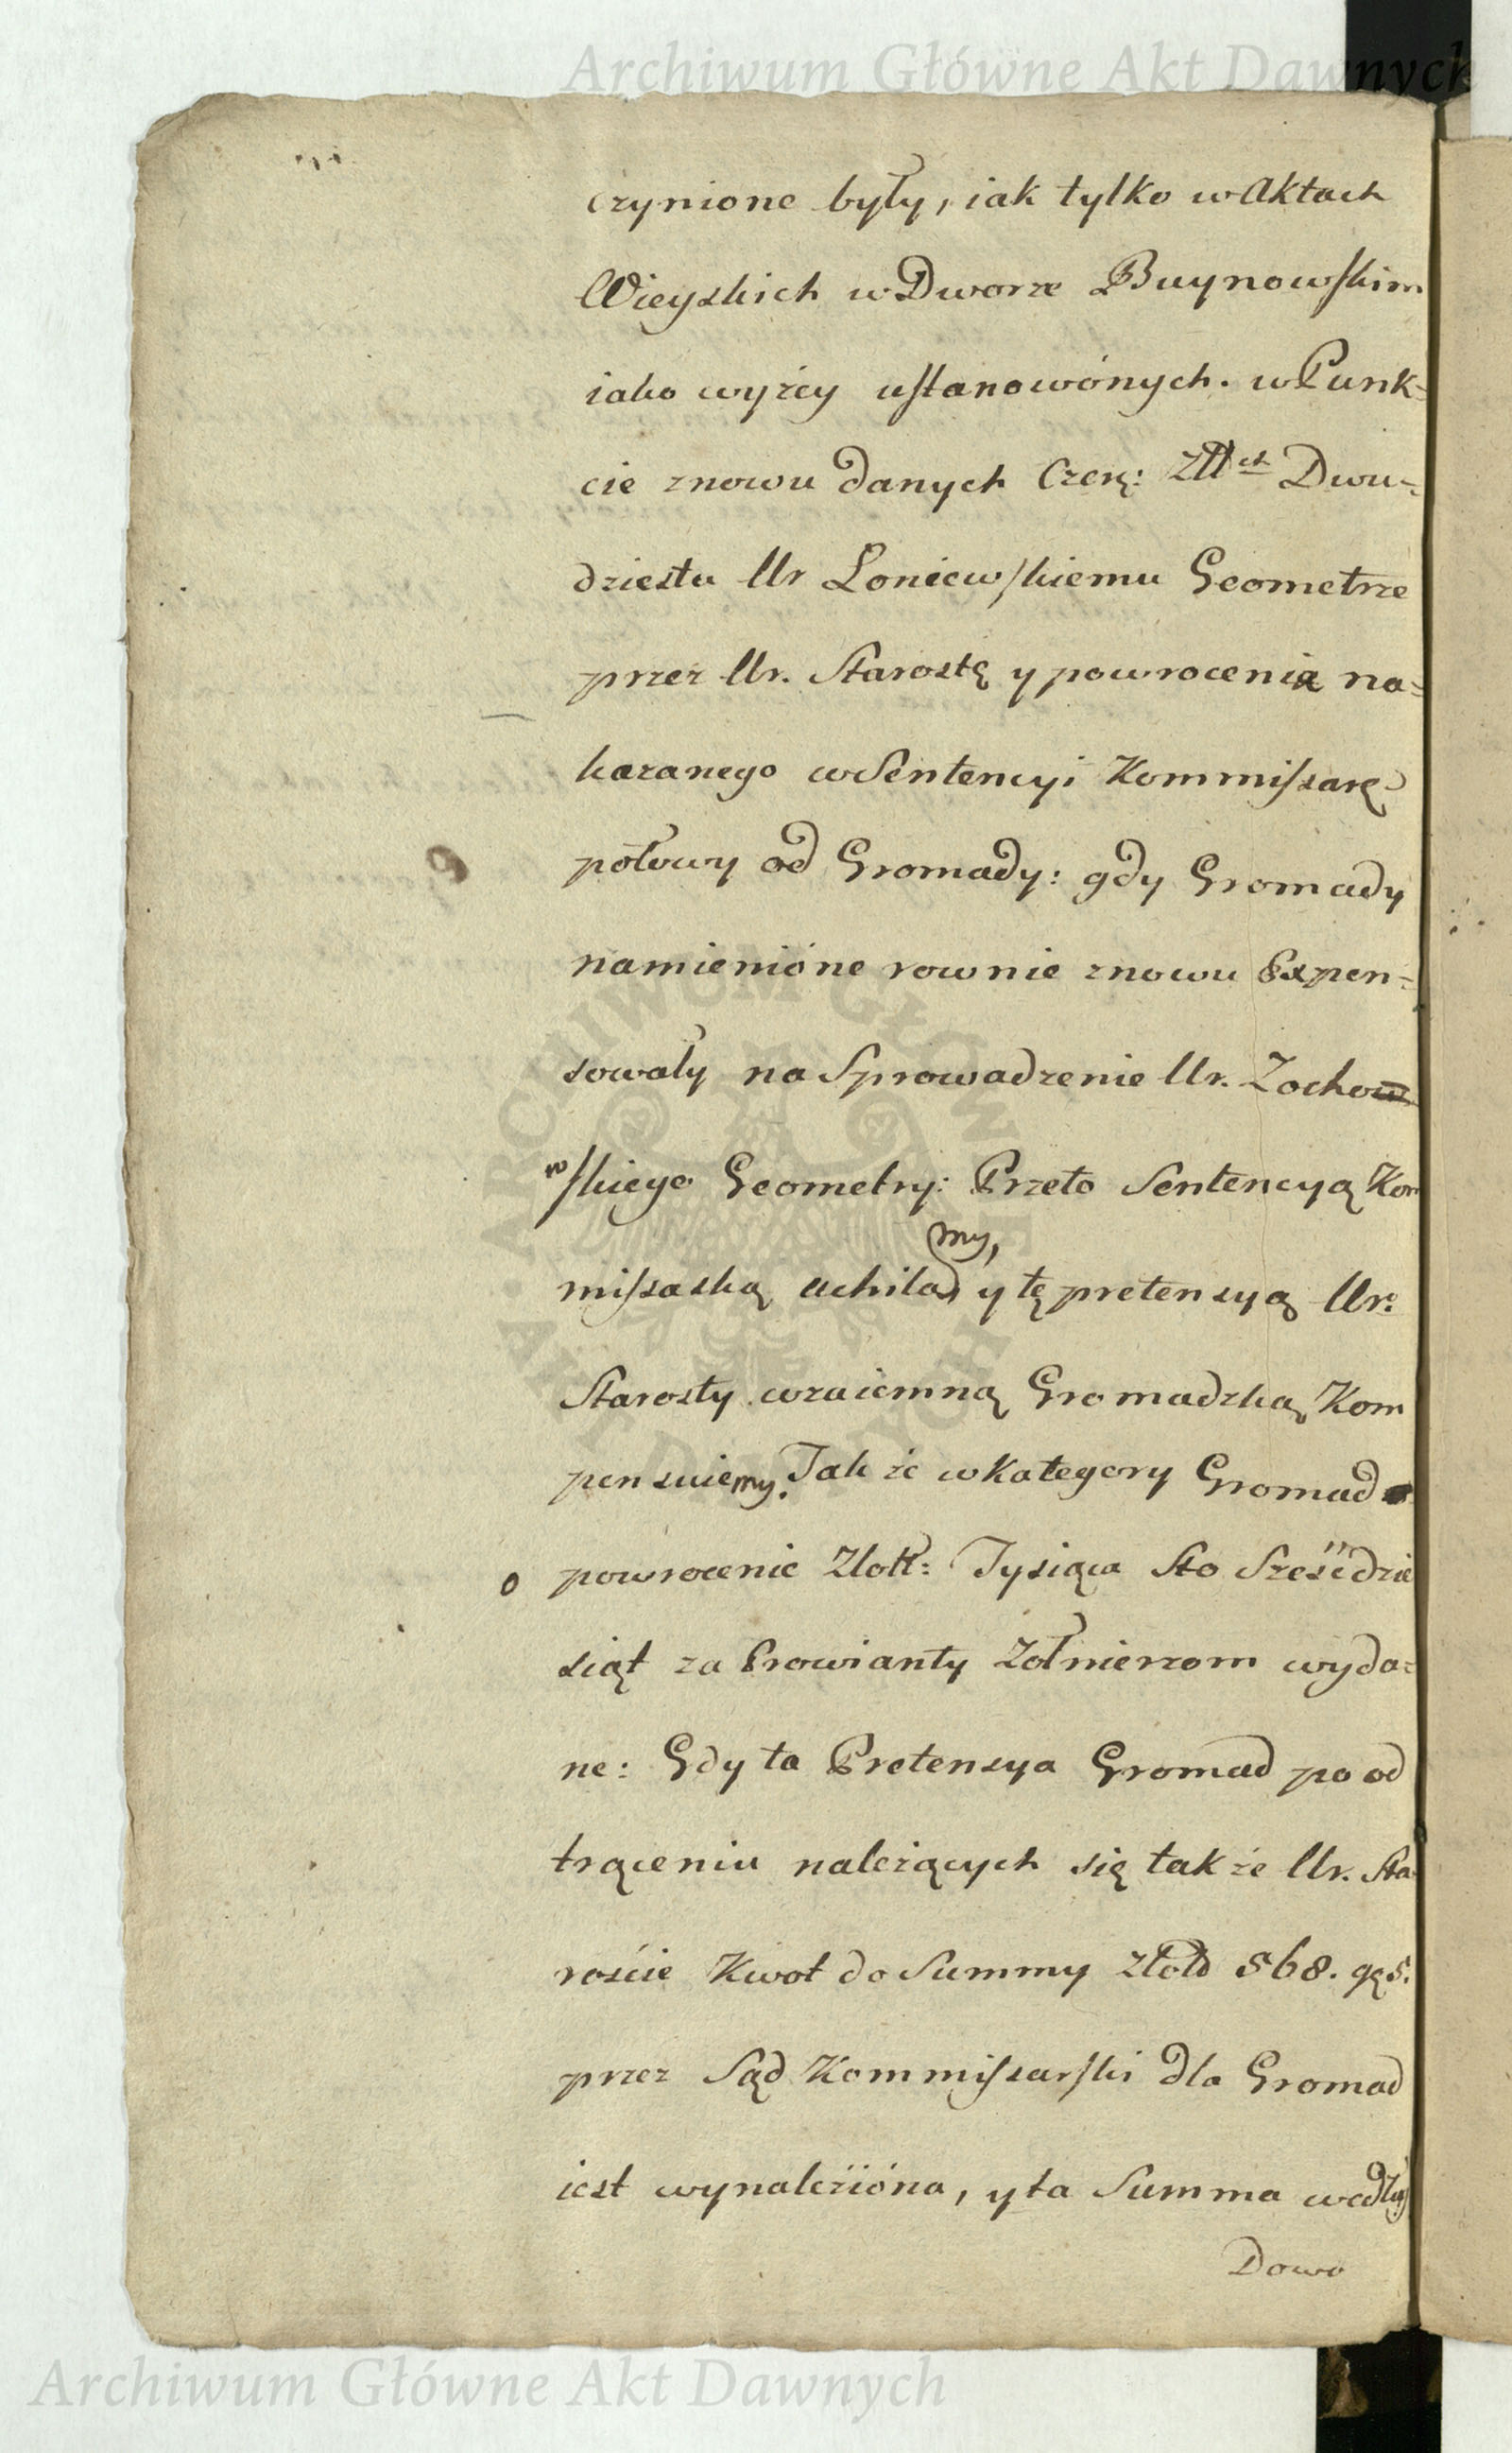 Archiwum Główne Akt Dawnych
czynione były, iak tylko w Aktach
Wieyskich w Dworze Buynowskim
iako wyżey ustanowiónych. w Punk=
cie znowu danych Czerę: Złłch Dwu=
dziestu Ur Łoniewskiemu Geometrze
przez Ur. Starostę y powrocenia na=
kazanego w Sentencyi Kommissarę
połowy od Gromady: gdy Gromady
namienióne rownie znowu Expen=
sowały na Sprowadzenie Ur. Zochow
wskiego Geometry: Przeto Sentencyą Kom
my,
missaską uchila y tę pretensyą Ur:
Starosty wzaiemną Gromadzką Kom
pensuiemy. Jak że w Kategory Gromad
o powrocenie Złott: Tysiąca Sto Sześćdzie
siąt za Prowianty Żołnierzom wyda=
ne: Gdy ta Pretensya Gromad po od
trąceniu należących się także Ur. Sta
rościе Kwot do Summy Złotł 568. gę 5.
przez Sąd Kommissarski dla Gromad
iest wynależióna, y ta Summa wedłuġ
Dowo
ARCHIWUM GŁÓWNE AKT DAWNYCH
Archiwum Główne Akt Dawnych